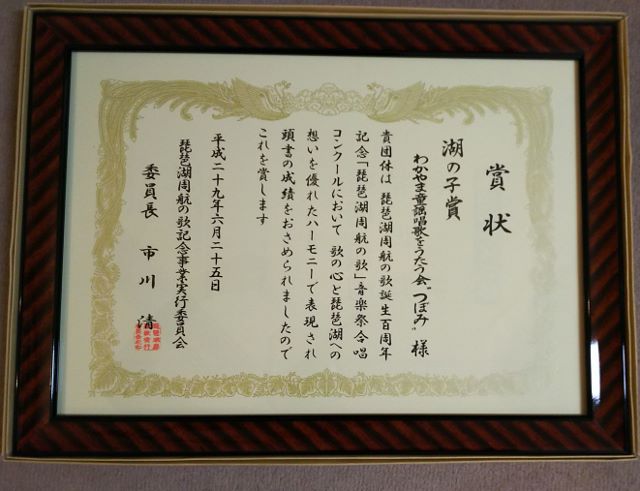 賞状
湖の子賞
わかやま童謡唱歌をうたう会〝つぼみ〟様
貴団体は 琵琶湖周航の歌誕生百周年
記念「琵琶湖周航の歌」音楽祭合唱
コンクールにおいて 歌の心と琵琶湖への
想いを優れたハーモニーで表現され
頭書の成績をおさめられましたので
これを賞します
平成二十九年六月二十五日
琵琶湖周航の歌記念事業実行委員会
委員長 市川 清